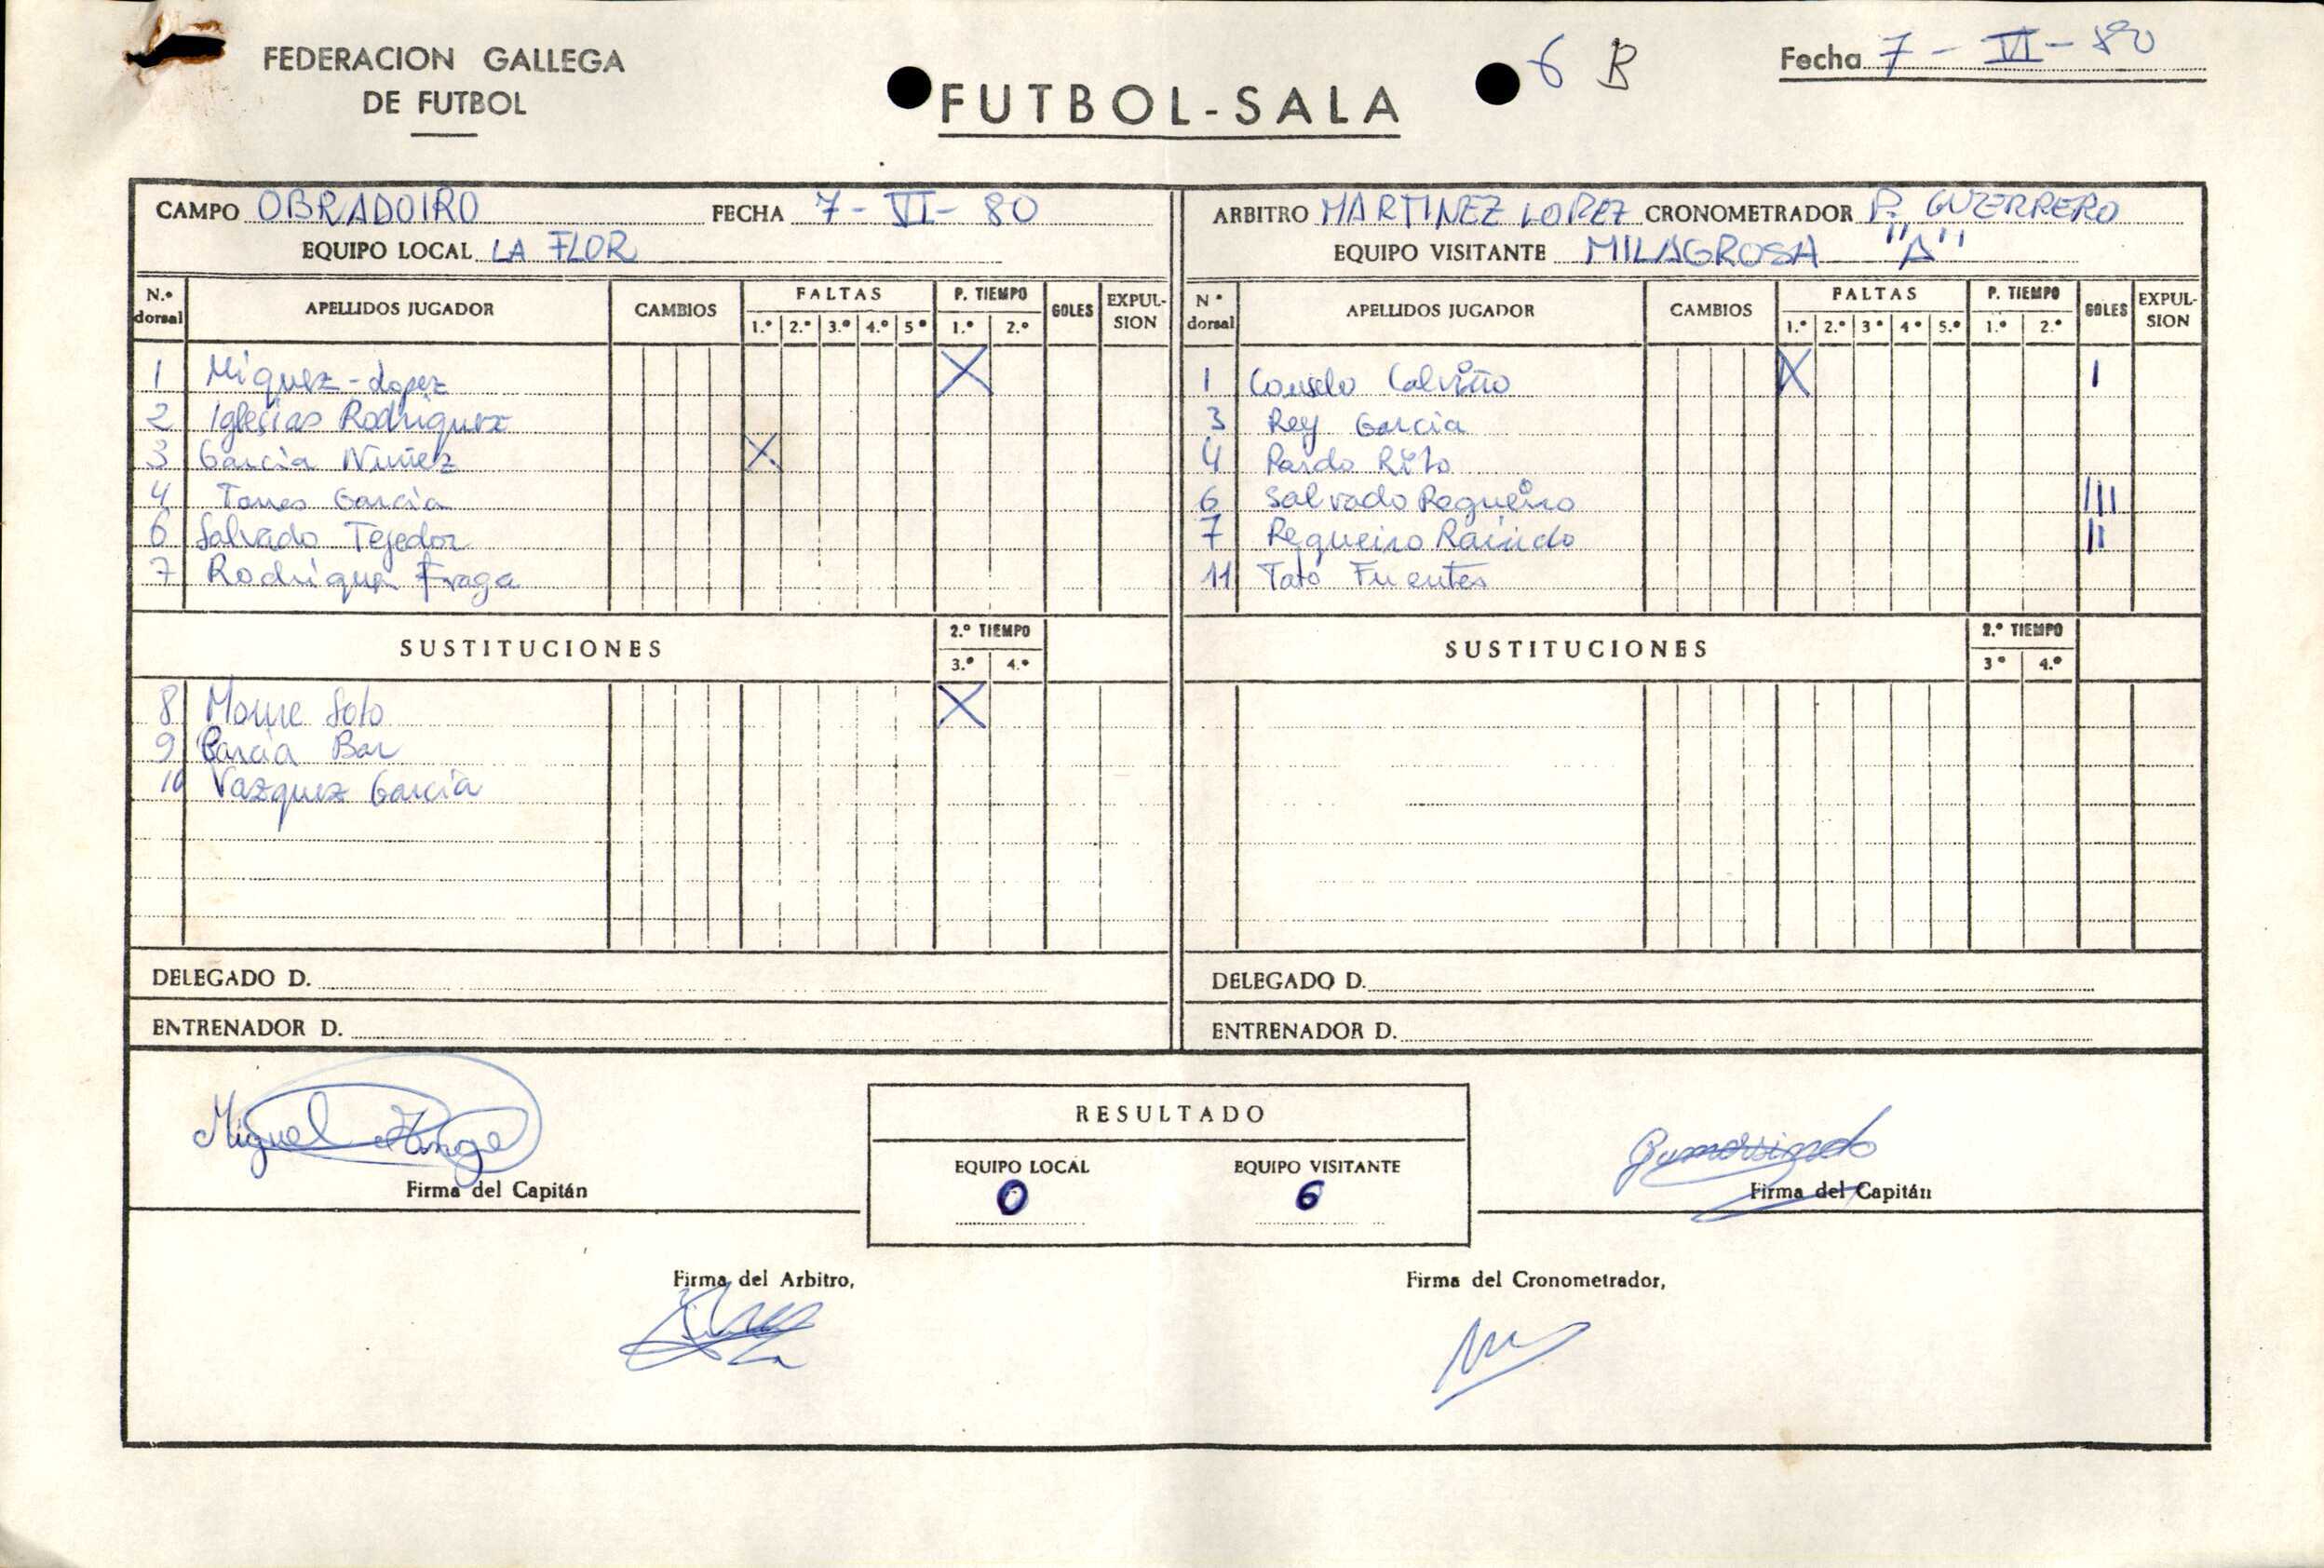 FEDERACION GALLEGA
DE FUTBOL
FUTBOL-SALA
6 B
Fecha 7-VI-80
CAMPO OBRADOIRO FECHA 7-VI-80
EQUIPO LOCAL LA FLOR
N.º dorsal APELLIDOS JUGADOR CAMBIOS FALTAS 1.º 2.º 3.º 4.º 5º P. TIEMPO 1.º 2.º GOLES EXPUL-SION
1 Miguez-Lopez X
2 Iglesias Rodriguez
3 Garcia Nuñez X
4 Torres Garcia
6 Salvado Tejedor
7 Rodriguez Fraga
SUSTITUCIONES 2.º TIEMPO 3.º 4.º
8 Moure Soto X
9 Garcia Bar
10 Vazquez Garcia
DELEGADO D.
ENTRENADOR D.
ARBITRO MARTINEZ LOPEZ CRONOMETRADOR P. GUERRERO
EQUIPO VISITANTE MILAGROSA "A"
Nº dorsal APELLIDOS JUGADOR CAMBIOS FALTAS 1.º 2.º 3º 4º 5.º P. TIEMPO 1.º 2.º GOLES EXPUL-SION
1 Couselo Calviño X I
3 Rey Garcia
4 Pardo Rito
6 Salvado Regueiro III
7 Regueiro Raindo II
11 Tato Fuentes
SUSTITUCIONES 2.º TIEMPO 3º 4.º
DELEGADO D.
ENTRENADOR D.
Miguel Angel
Firma del Capitán
RESULTADO
EQUIPO LOCAL EQUIPO VISITANTE
0 6
Gumersindo
Firma del Capitán
Firma del Arbitro,
Firma del Cronometrador,